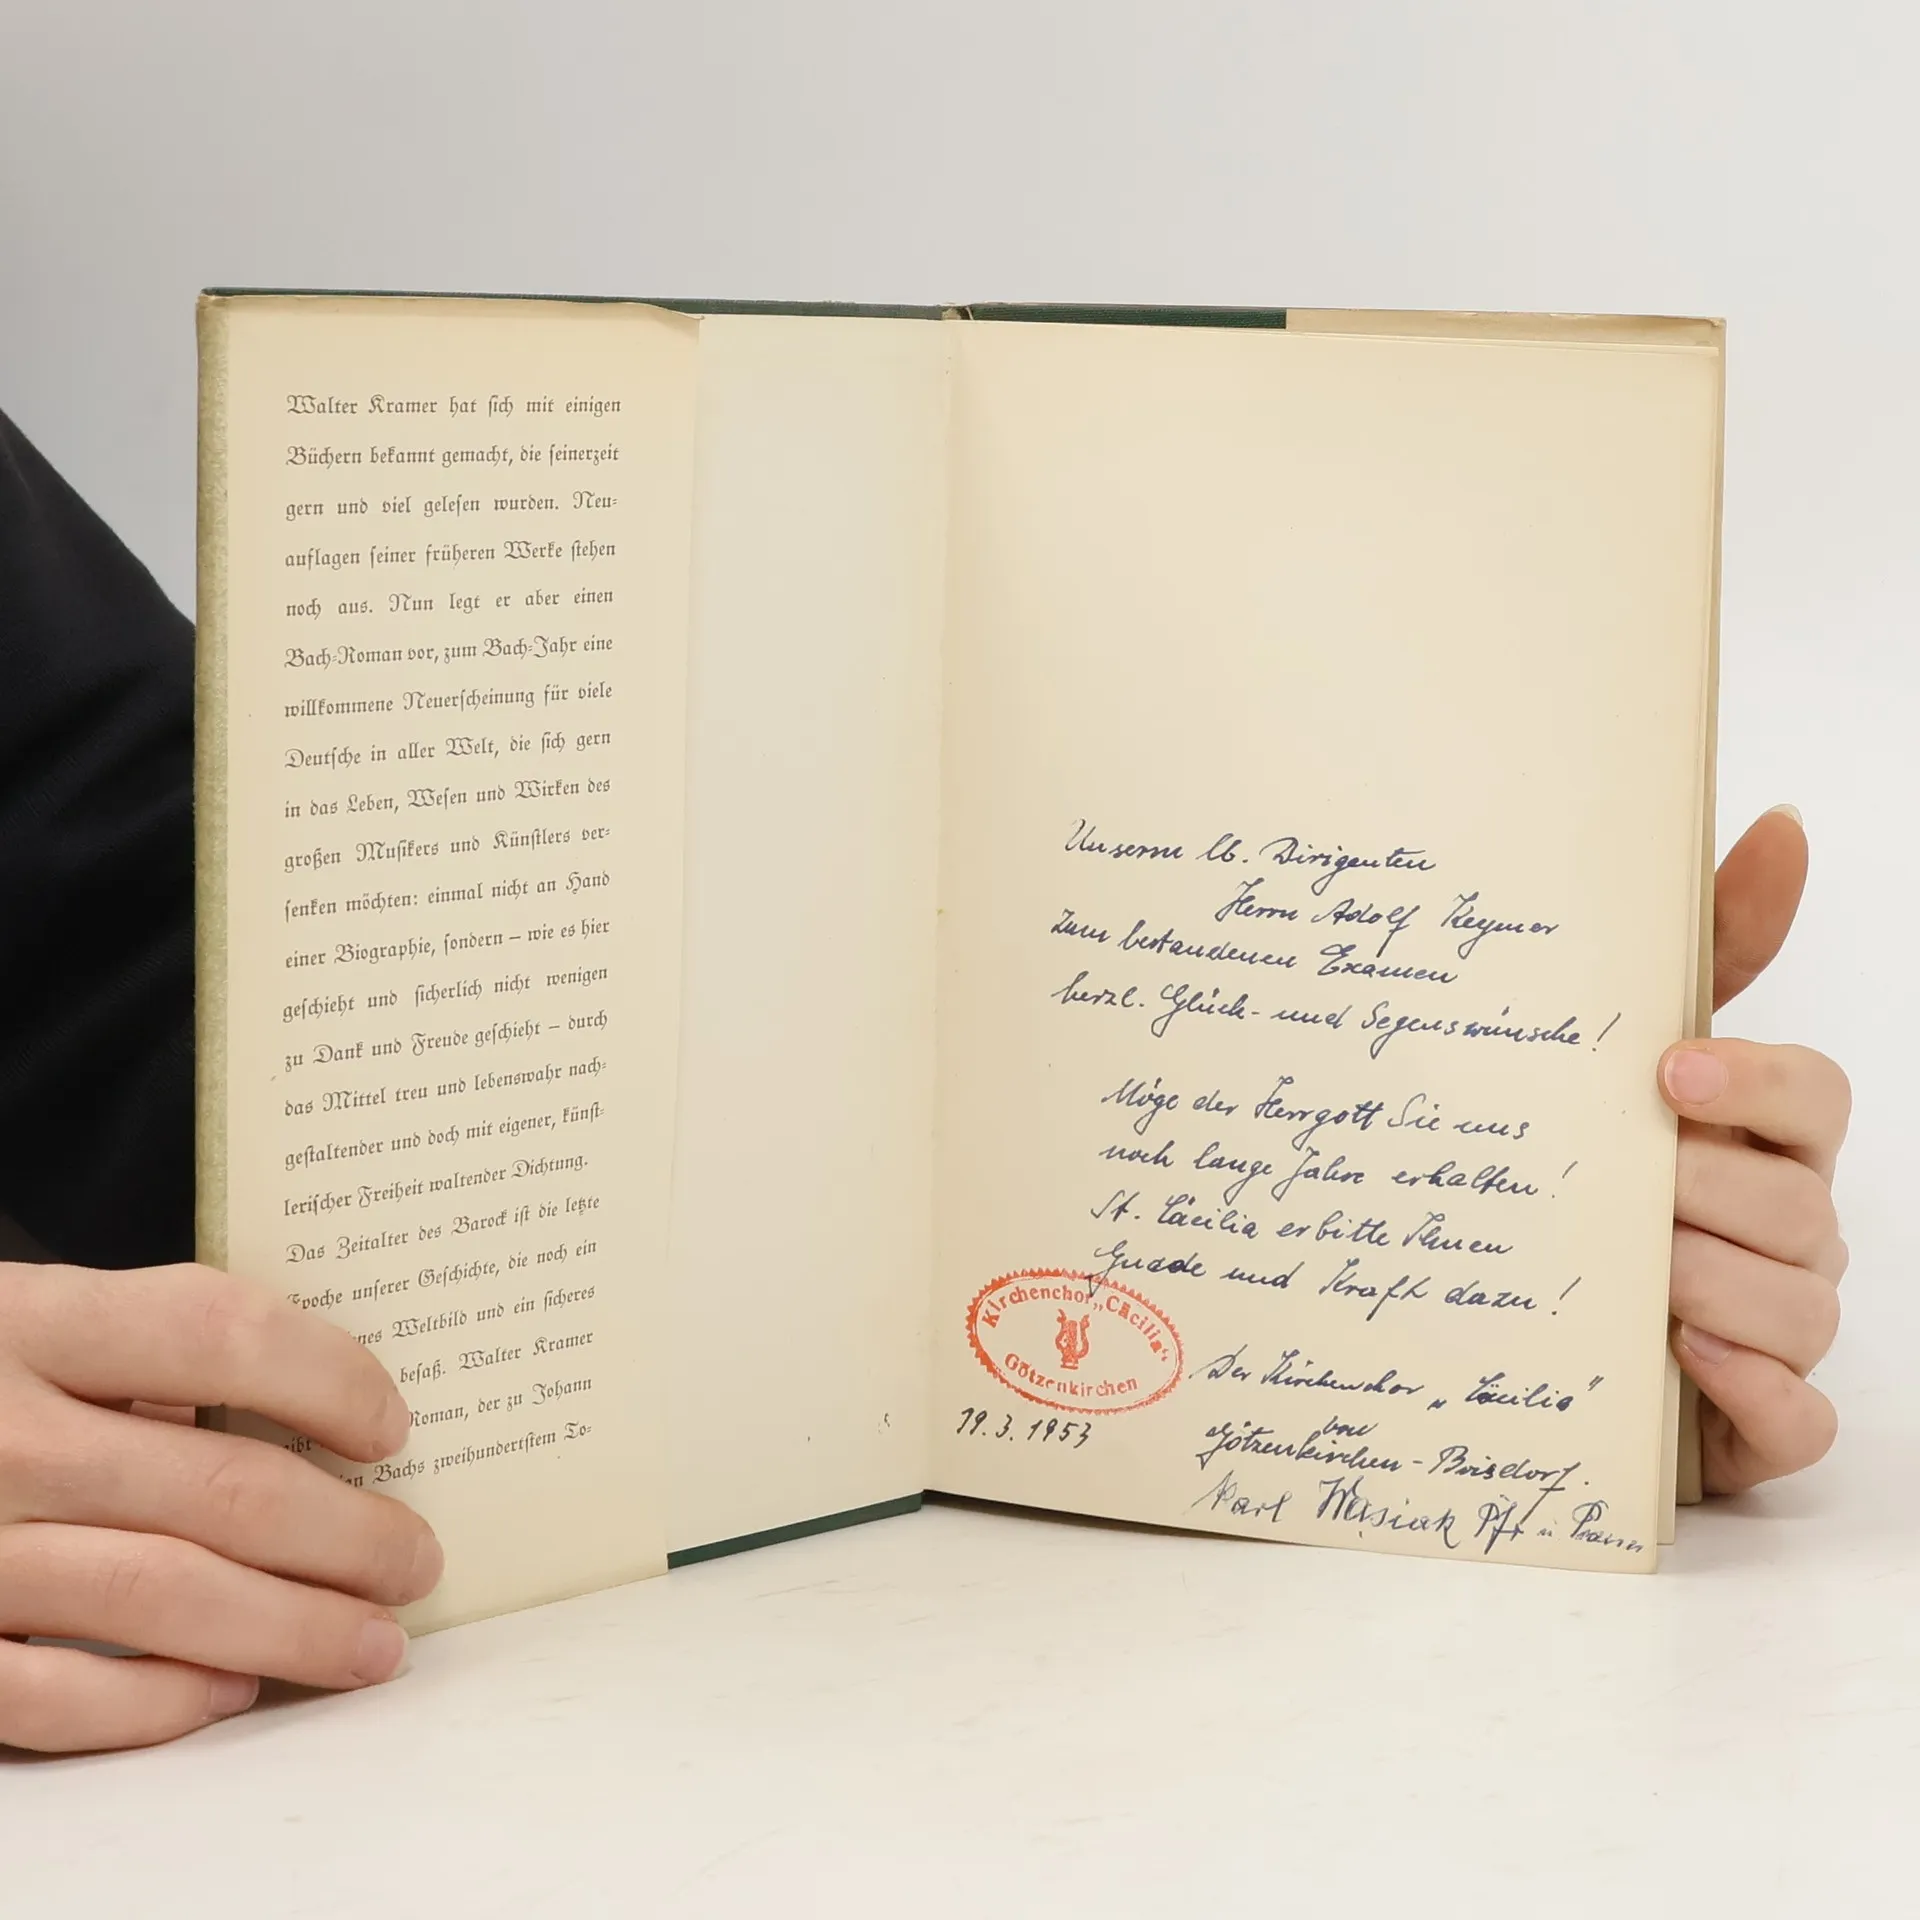 Walter Kramer hat sich mit einigen
Büchern bekannt gemacht, die seinerzeit
gern und viel gelesen wurden. Neu-
auflagen seiner früheren Werke stehen
noch aus. Nun legt er aber einen
Bach-Roman vor, zum Bach-Jahr eine
willkommene Neuerscheinung für viele
Deutsche in aller Welt, die sich gern
in das Leben, Wesen und Wirken des
großen Musikers und Künstlers ver-
senken möchten: einmal nicht an Hand
einer Biographie, sondern – wie es hier
geschieht und sicherlich nicht wenigen
zu Dank und Freude geschieht – durch
das Mittel treu und lebenswahr nach-
gestaltender und doch mit eigener, künst-
lerischer Freiheit waltender Dichtung.
Das Zeitalter des Barock ist die letzte
Epoche unserer Geschichte, die noch ein
Weltbild und ein sicheres
besaß. Walter Kramer
Roman, der zu Johann
Bachs zweihundertstem To-
Unserm lb. Dirigenten
Herrn Adolf Keymer
zum bestandenen Examen
herzl. Glück- und Segenswünsche!
Möge der Herrgott Sie uns
noch lange Jahre erhalten!
St. Cäcilia erbitte Ihnen
Gnade und Kraft dazu!
Kirchenchor „Cäcilia“
Götzenkirchen
Der Kirchenchor „Cäcilia"
von
Götzenkirchen - Boisdorf.
19.3.1953
Karl Wasiak Pfr u